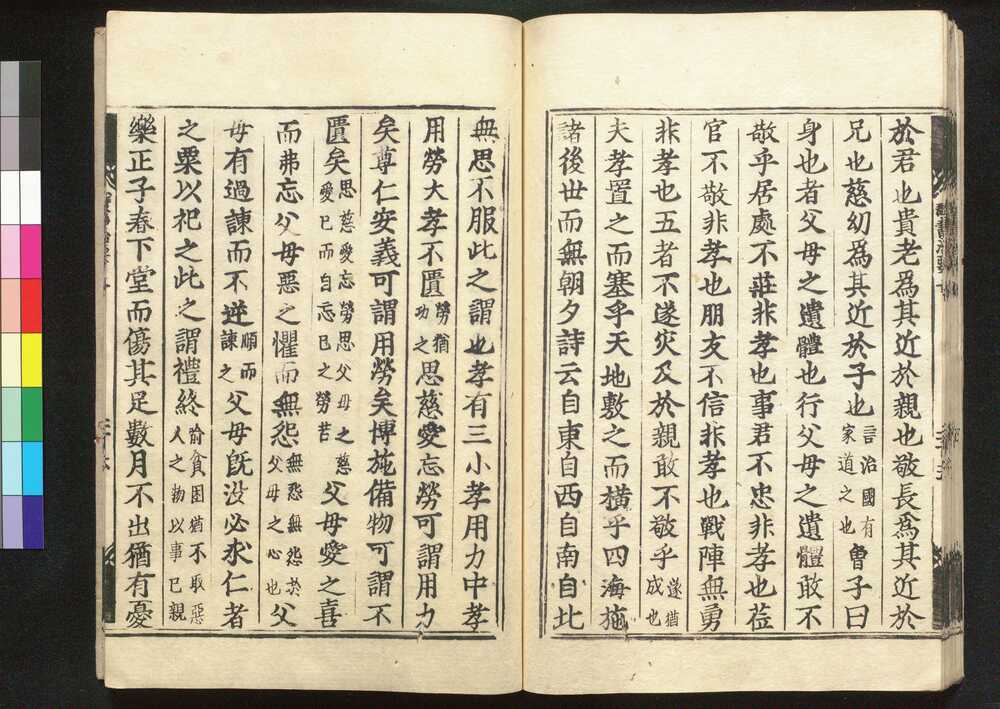 於君也貴老為其近於親也敬長為其近於
兄也慈幼為其近於子也言治國有家道之也曽子曰
身也者父母之遺體也行父母之遺體敢不
敬乎居處不莊非孝也事君不忠非孝也莅
官不敬非孝也朋友不信非孝也戰陣無勇
非孝也五者不遂灾及於親敢不敬乎遂猶成也
夫孝置之而塞乎天地敷之而橫乎四海施
諸後世而無朝夕詩云自東自西自南自北
無思不服此之謂也孝有三小孝用力中孝
用勞大孝不匱勞猶功之思慈愛忘勞可謂用力
矣尊仁安義可謂用勞矣博施備物可謂不
匱矣思慈愛忘勞思父母之慈愛已而自忘已之勞苦父母愛之喜
而弗忘父母惡之懼而無怨無怨無怨於父母之心也父
母有過諫而不逆順而諫之父母旣没必求仁者
之粟以祀之此之謂禮終喻貧困猶不取惡人之物以事已親
樂正子春下堂而傷其足數月不出猶有憂